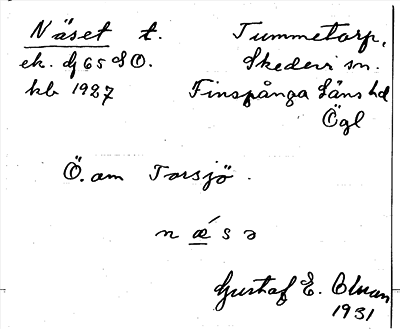 Näset t. Tummetorp,
ek. bl 65 SO. Skedevi sn.
kb 1927 Finspånga Läns hd
Ögl
Ö. om Torsjö.
n ǽ s ə
Gustaf E. Olman
1931